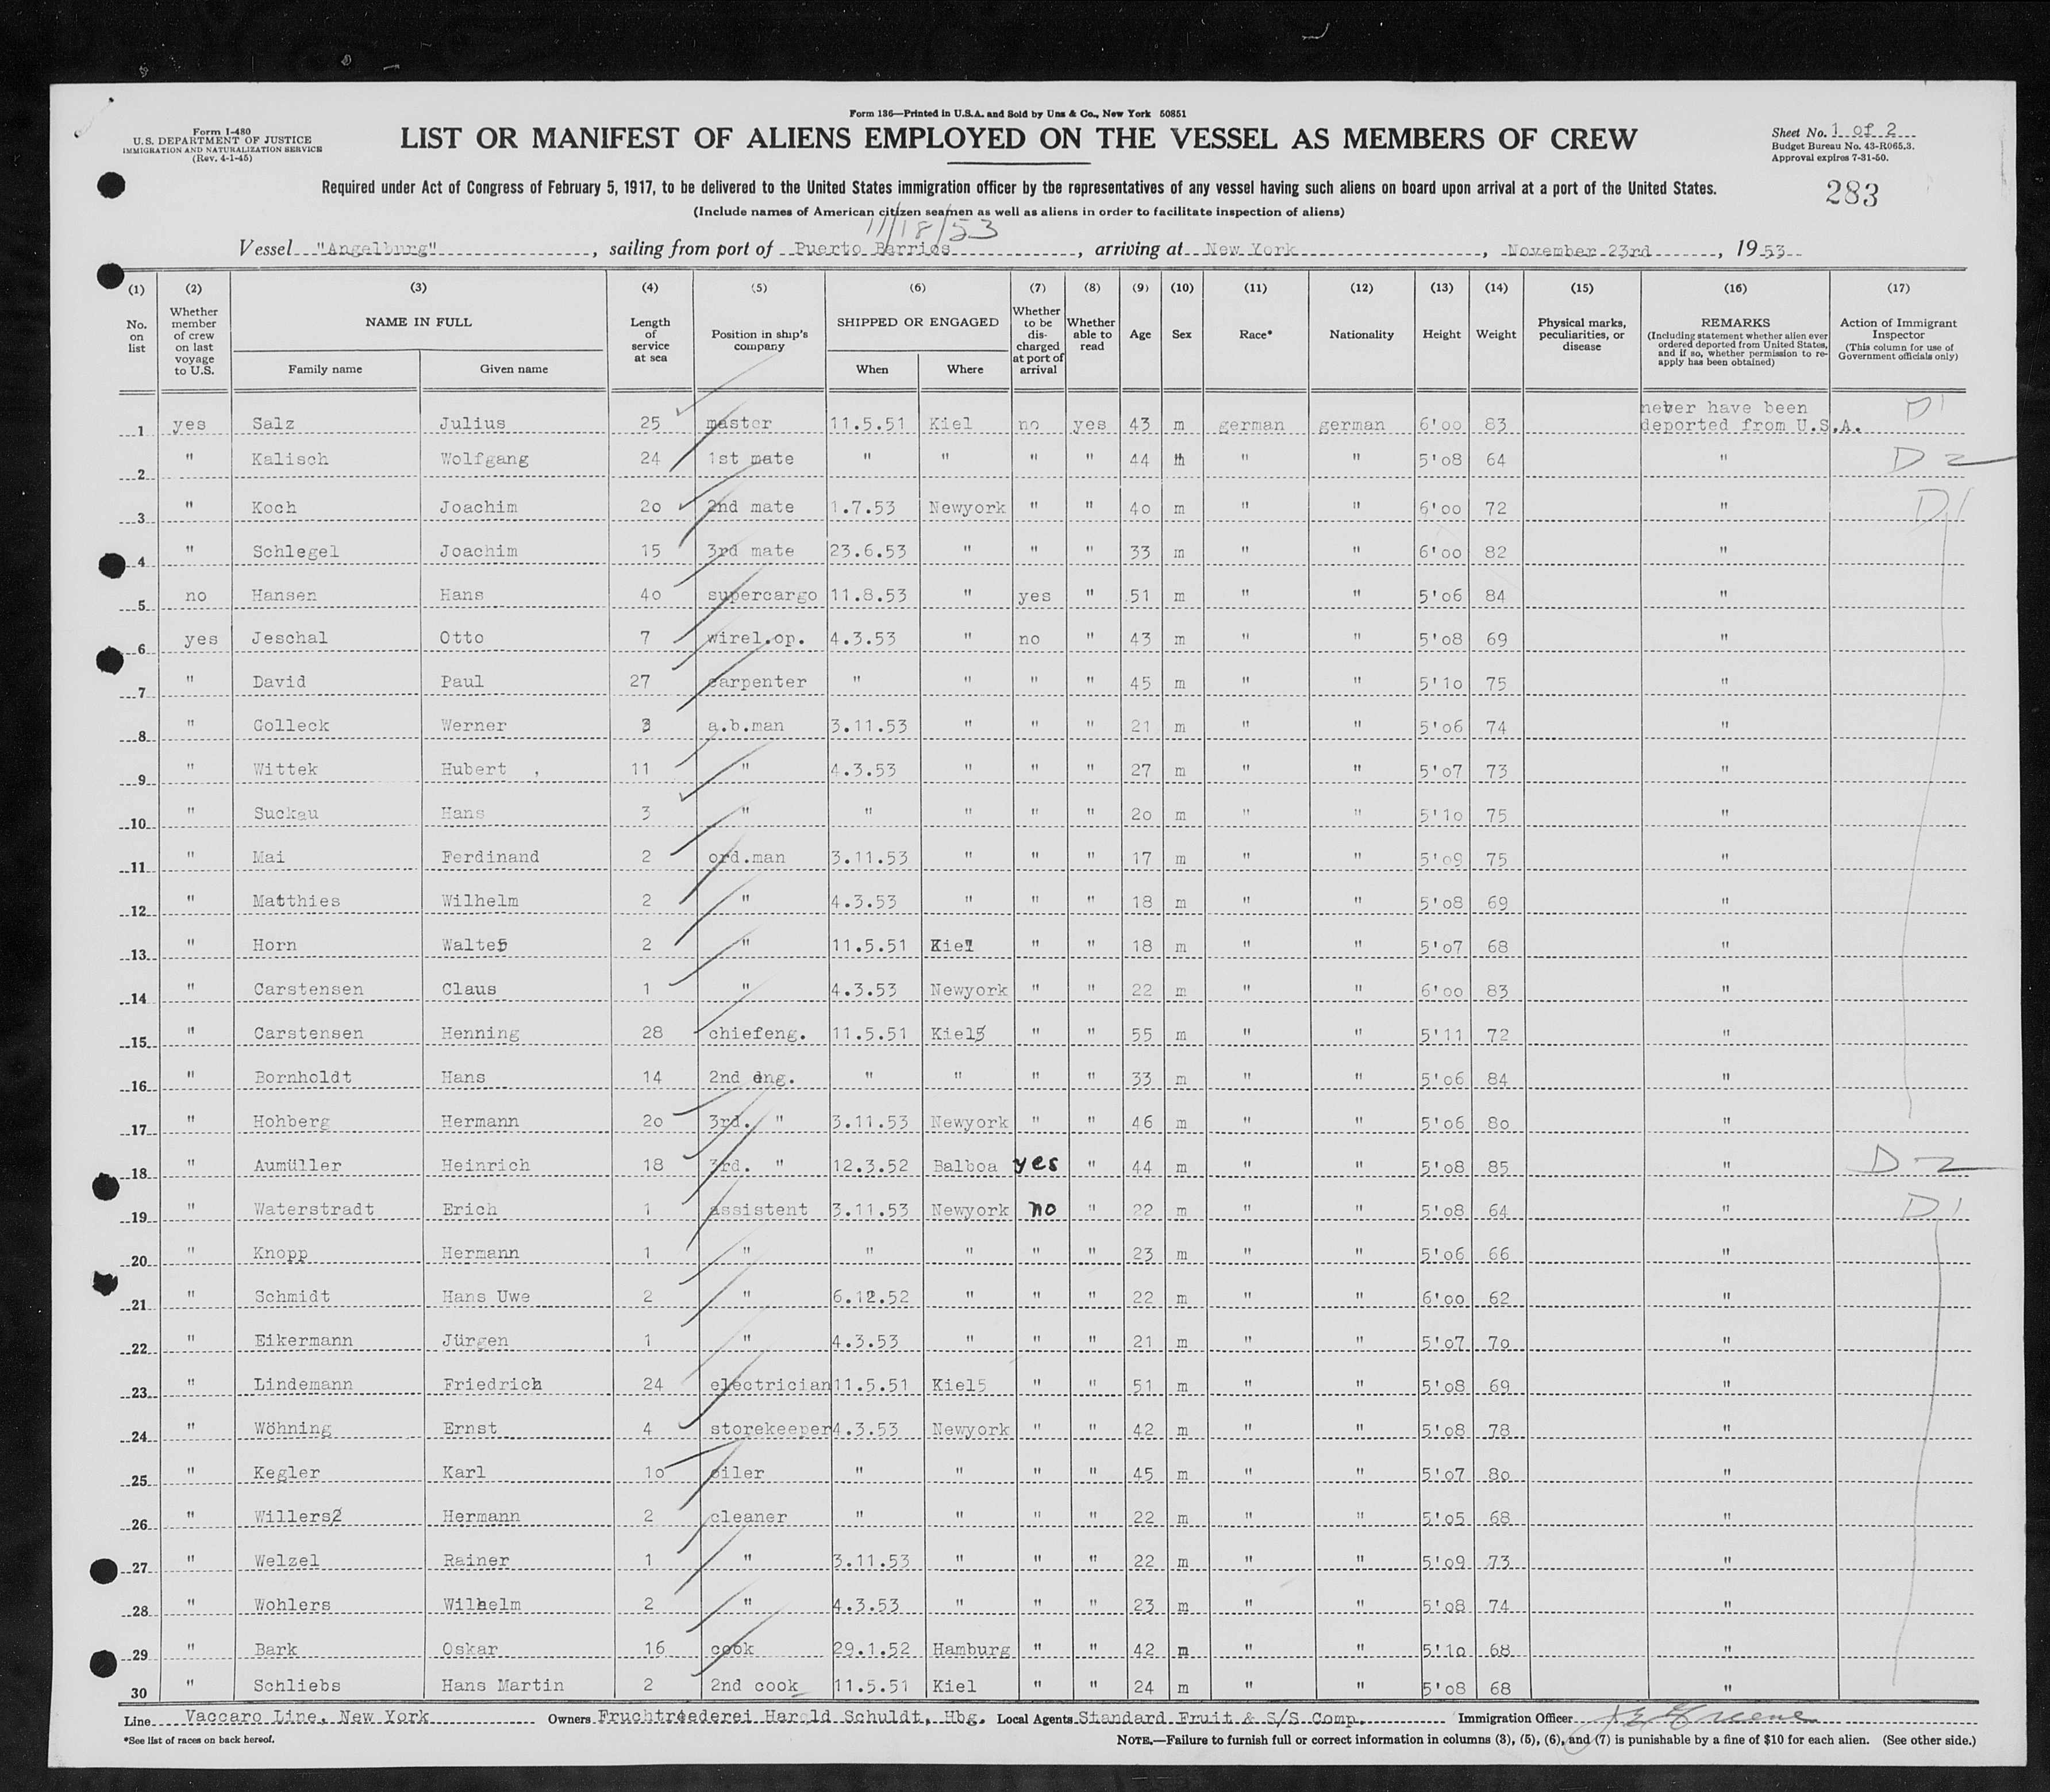 Form 136—Printed in U.S.A. and Sold by Unz & Co., New York 50851
Form I-480
U.S. DEPARTMENT OF JUSTICE
IMMIGRATION AND NATURALIZATION SERVICE
(Rev. 4-1-45)
LIST OR MANIFEST OF ALIENS EMPLOYED ON THE VESSEL AS MEMBERS OF CREW
Sheet No. 1 of 2
Budget Bureau No. 43-R065.3.
Approval expires 7-31-50.
Required under Act of Congress of February 5, 1917, to be delivered to the United States immigration officer by the representatives of any vessel having such aliens on board upon arrival at a port of the United States.
283
(Include names of American citizen seamen as well as aliens in order to facilitate inspection of aliens)
11/18/53
Vessel "Angelburg", sailing from port of Puerto Barrios, arriving at New York, November 23rd, 1953
(1) (2) (3) (4) (5) (6) (7) (8) (9) (10) (11) (12) (13) (14) (15) (16) (17)
No. on list
Whether member of crew on last voyage to U.S.
NAME IN FULL
Family name Given name
Length of service at sea
Position in ship's company
SHIPPED OR ENGAGED
When Where
Whether to be discharged at port of arrival
Whether able to read
Age
Sex
Race*
Nationality
Height
Weight
Physical marks, peculiarities, or disease
REMARKS
(Including statement whether alien ever ordered deported from United States, and if so, whether permission to reapply has been obtained)
Action of Immigrant Inspector
(This column for use of Government officials only)
1 yes Salz Julius 25 master 11.5.51 Kiel no yes 43 m german german 6'oo 83 never have been deported from U.S.A. D1
2 " Kalisch Wolfgang 24 1st mate " " " " 44 m " " 5'o8 64 " D2
3 " Koch Joachim 2o 2nd mate 1.7.53 Newyork " " 4o m " " 6'oo 72 " D1
4 " Schlegel Joachim 15 3rd mate 23.6.53 " " " 33 m " " 6'oo 82 "
5 no Hansen Hans 4o supercargo 11.8.53 " yes " 51 m " " 5'o6 84 "
6 yes Jeschal Otto 7 wirel.op. 4.3.53 " no " 43 m " " 5'o8 69 "
7 " David Paul 27 carpenter " " " " 45 m " " 5'1o 75 "
8 " Golleck Werner 3 a.b.man 3.11.53 " " " 21 m " " 5'o6 74 "
9 " Wittek Hubert , 11 " 4.3.53 " " " 27 m " " 5'o7 73 "
10 " Suckau Hans 3 " " " " " 2o m " " 5'1o 75 "
11 " Mai Ferdinand 2 ord.man 3.11.53 " " " 17 m " " 5'o9 75 "
12 " Matthies Wilhelm 2 " 4.3.53 " " " 18 m " " 5'o8 69 "
13 " Horn Walte5 2 " 11.5.51 Kiel " " 18 m " " 5'o7 68 "
14 " Carstensen Claus 1 " 4.3.53 Newyork " " 22 m " " 6'oo 83 "
15 " Carstensen Henning 28 chiefeng. 11.5.51 Kiel5 " " 55 m " " 5'11 72 "
16 " Bornholdt Hans 14 2nd eng. " " " " 33 m " " 5'o6 84 "
17 " Hohberg Hermann 2o 3rd. " 3.11.53 Newyork " " 46 m " " 5'o6 8o "
18 " Aumüller Heinrich 18 3rd. " 12.3.52 Balboa yes " 44 m " " 5'o8 85 " D2
19 " Waterstradt Erich 1 assistent 3.11.53 Newyork no " 22 m " " 5'o8 64 " D1
20 " Knopp Hermann 1 " " " " " 23 m " " 5'o6 66 "
21 " Schmidt Hans Uwe 2 " 6.12.52 " " " 22 m " " 6'oo 62 "
22 " Eikermann Jürgen 1 " 4.3.53 " " " 21 m " " 5'o7 7o "
23 " Lindemann Friedrich 24 electrician 11.5.51 Kiel5 " " 51 m " " 5'o8 69 "
24 " Wöhning Ernst 4 storekeeper 4.3.53 Newyork " " 42 m " " 5'o8 78 "
25 " Kegler Karl 1o oiler " " " " 45 m " " 5'o7 8o "
26 " Willers2 Hermann 2 cleaner " " " " 22 m " " 5'o5 68 "
27 " Welzel Rainer 1 " 3.11.53 " " " 22 m " " 5'o9 73 "
28 " Wohlers Wilhelm 2 " 4.3.53 " " " 23 m " " 5'o8 74 "
29 " Bark Oskar 16 cook 29.1.52 Hamburg " " 42 m " " 5'1o 68 "
30 " Schliebs Hans Martin 2 2nd cook 11.5.51 Kiel " " 24 m " " 5'o8 68 "
Line Vaccaro Line, New York Owners Fruchtreederei Harold Schuldt, Hbg. Local Agents Standard Fruit & S/S Comp. Immigration Officer Greene
*See list of races on back hereof.
NOTE.—Failure to furnish full or correct information in columns (3), (5), (6), and (7) is punishable by a fine of $10 for each alien. (See other side.)